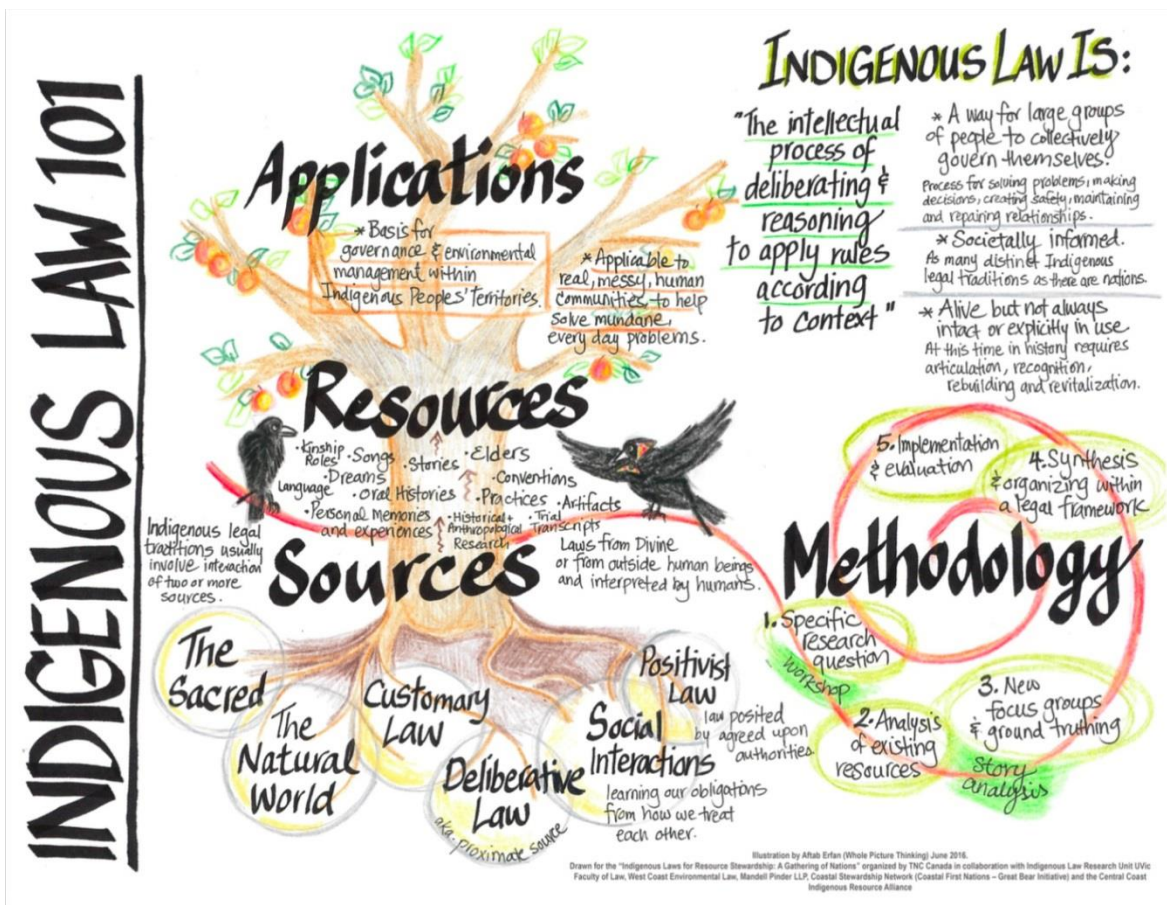 INDIGENOUS LAW 101
Applications
* Basis for
governance & environmental
management within
Indigenous Peoples' Territories.
* Applicable to
real, messy, human
communities, to help
solve mundane,
every day problems.
Resources
• Kinship
Roles
• Songs
• Stories
• Elders
• Dreams
• Conventions
Language
• Oral Histories
• Practices
• Artifacts
• Personal Memories
and experiences
• Historical +
Anthropological
Research
• Trial
Transcripts
Sources
Indigenous legal
traditions usually
involve interaction
of two or more
sources.
Laws from Divine
or from outside human beings
and interpreted by humans.
The
Sacred
The
Natural
World
Customary
Law
Deliberative
Law
aka. proximate source
Social
Interactions
learning our obligations
from how we treat
each other.
Positivist
Law
law posited
by agreed upon
authorities.
INDIGENOUS LAW IS:
"The intellectual
process of
deliberating &
reasoning
to apply rules
according
to context"
* A way for large groups
of people to collectively
govern themselves.
Process for solving problems, making
decisions, creating safety, maintaining
and repairing relationships.
* Societally informed.
As many distinct Indigenous
legal traditions as there are nations.
* Alive but not always
intact or explicitly in use
At this time in history requires
articulation, recognition,
rebuilding and revitalization.
Methodology
1. Specific
research
question
Workshop
2. Analysis
of existing
resources
3. New
focus groups
& ground truthing
Story
analysis
4. Synthesis
& organizing within
a legal framework
5. Implementation
& evaluation
Illustration by Aftab Erfan (Whole Picture Thinking) June 2016.
Drawn for the "Indigenous Laws for Resource Stewardship: A Gathering of Nations" organized by TNC Canada in collaboration with Indigenous Law Research Unit UVic
Faculty of Law, West Coast Environmental Law, Mandell Pinder LLP, Coastal Stewardship Network (Coastal First Nations – Great Bear Initiative) and the Central Coast
Indigenous Resource Alliance